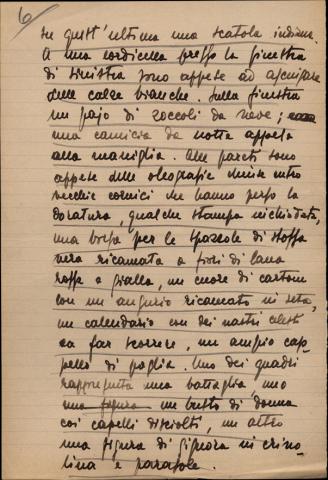 6/
su quest'ultima una scatola indiana.
A una cordicella presso la finestra
di sinistra sono appese ad asciugare
delle calze bianche. Sulla finestra
un pajo di zoccoli da neve;
una camicia da notte appesa
alla maniglia. Alle pareti sono
appese delle oleografie chiuse entro
vecchie cornici che hanno perso la
doratura, qualche stampa inchiodata,
una borsa per le spazzole di stoffa
nera ricamata a fiori di lana
rossa e gialla, un cuore di cartone
con un augurio ricamato in seta,
un calendario con dei nastri celesti
da far scorrere, un ampio cap
pello di paglia. Uno dei quadri
rappresenta una battaglia, uno
una figura un busto di donna
coi capelli disciolti, un altro
una figura di signora in crino
lina e parasole.